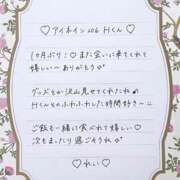 ♡ アイネイン206 Hくん ♡
1ヶ月ぶり♡また会いに来てくれて
嬉しい〜ありがとう♡
グッズとか沢山見せてくれたね♡
Hくんとのふわふわした時間好き〜♡
ご飯も一緒に食べれて嬉しい♡
次もまったり過ごそうね♡
♡ れい ♡